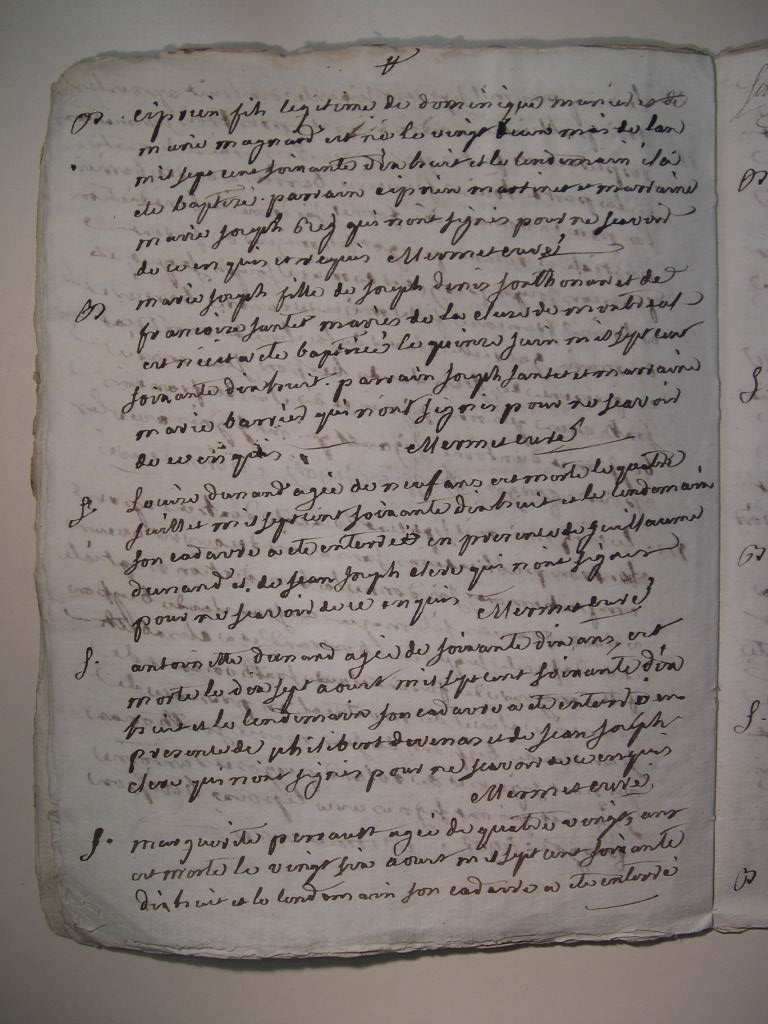 B. Ciprien fils legitime de dominique muneret de
marie magnard est né le vingt mai de lan
mil sept cent soixante dixhuit et le lendemain il a
ete baptize. parrain ciprien martinet et marraine
marie joseph qui n'ont signes pour ne scavoir
de ce enquis et requis Mermet curé
B. marie joseph fille de joseph denis sonthonax et de
francoise santet mariés de la cluse de montreal
est née et a ete baptizée le quinze juin mil sept cent
soixante dixhuit. parrain joseph santet et marraine
marie qui n'ont signés pour ne scavoir
de ce enquis. Mermet curé
S. Louise dunand agée de neuf ans est morte le quatre
juillet mil sept cent soixante dixhuit et le lendemain
son cadavre a ete enterré en presence de guillaume
dunand et de jean joseph clerc qui n'ont signes
pour ne scavoir de ce enquis Mermet curé
S. antoinette dunand agée de soixante dix ans, est
morte le dix sept aoust mil sept cent soixante dix
huit et le lendemain son cadavre a ete enterré en
presence de philibert devenas et de jean joseph
clerc qui n'ont signés pour ne scavoir de ce enquis
Mermet curé
S. marguerite agée de quatre vingts ans
est morte le vingt six aoust mil sept cent soixante
dixhuit et le lendemain son cadavre a ete enterré